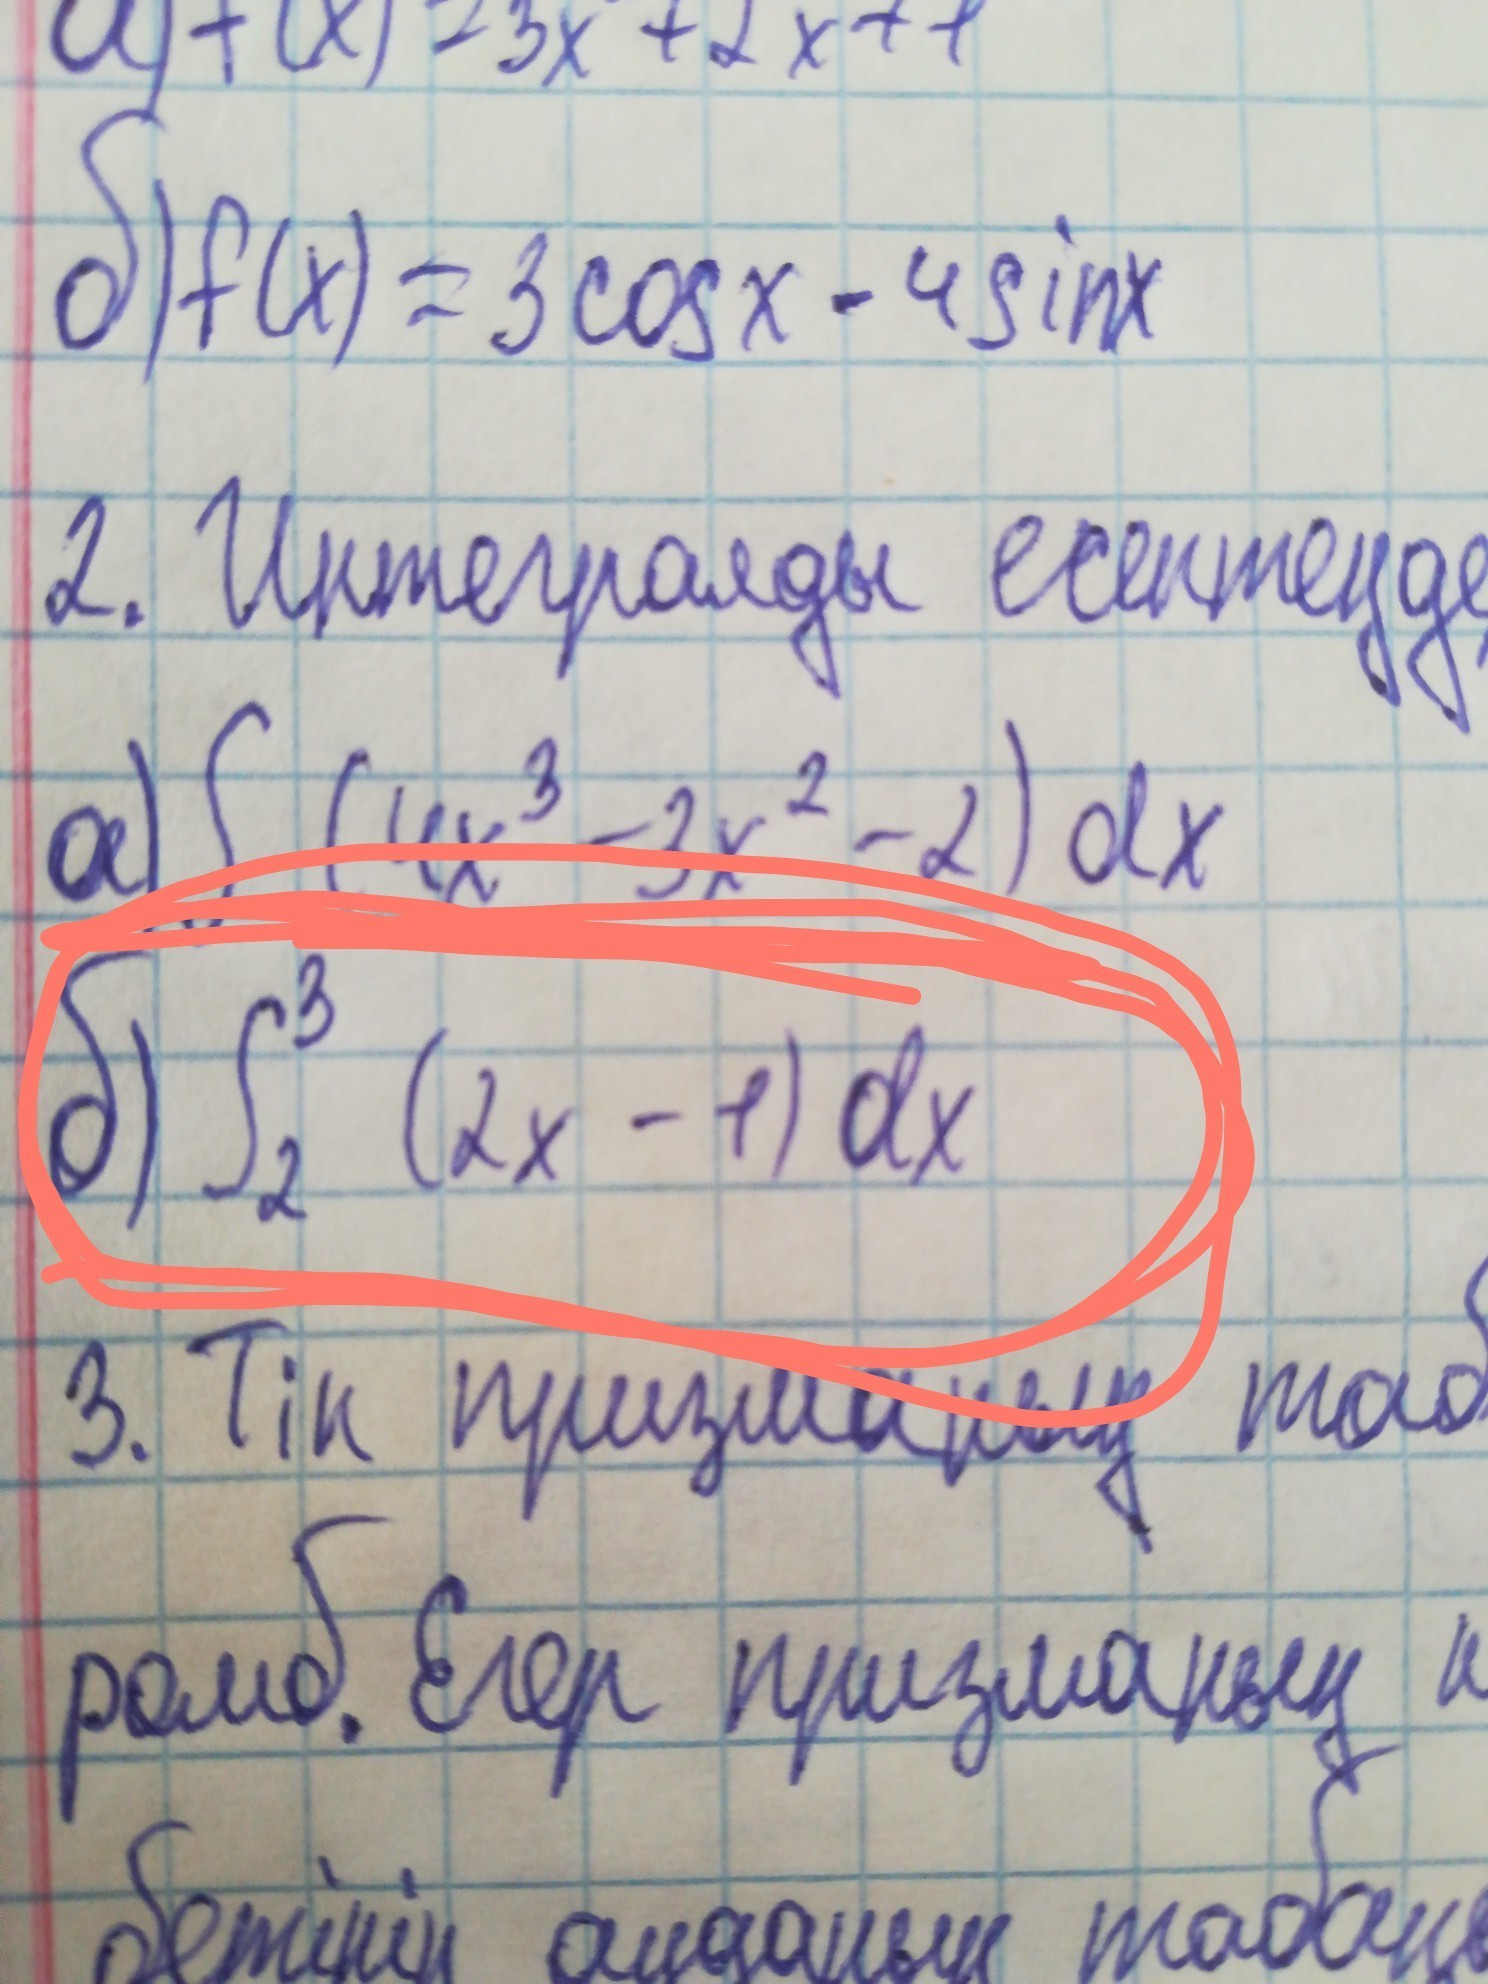 а) f(x) = 3x + 2x + 1
б) f(x) = 3cosx - 4sinx
2. Интегралды есептеуде
а) ∫ (4x³ - 3x² - 2) dx
б) ∫₂³ (2x - 1) dx
3. Тік призманың таб
ромб. Егер призманың
бетінің ауданын табаны